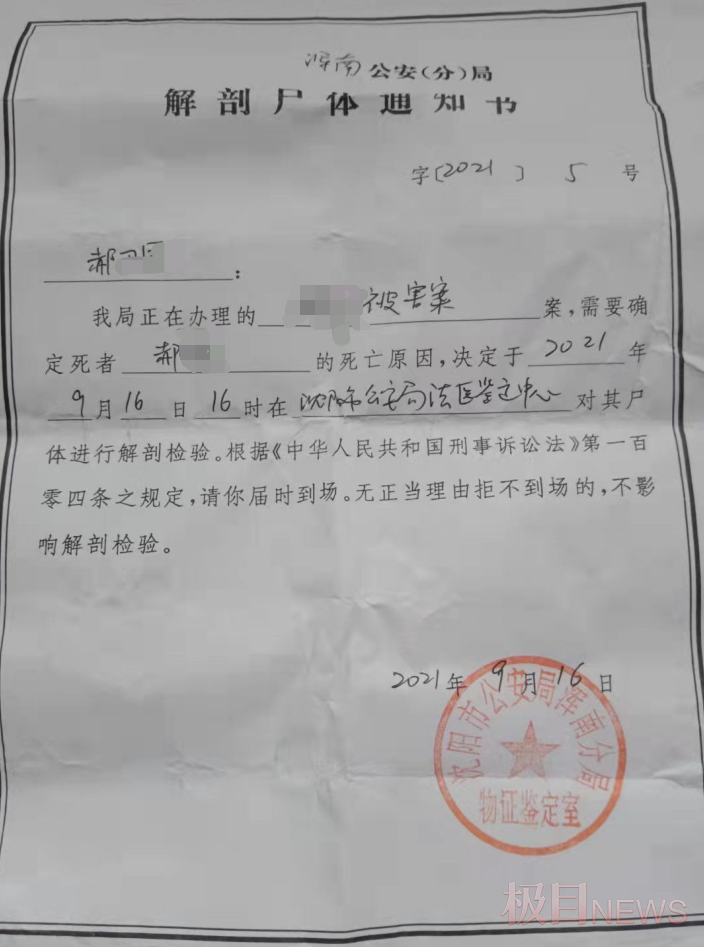 浑南公安(分)局
解剖尸体通知书
字〔2021〕 5 号
郝:
我局正在办理的 被害案 案,需要确
定死者 郝 的死亡原因,决定于 2021 年
9 月 16 日 16 时在 沈阳市公安局法医鉴定中心 对其尸
体进行解剖检验。根据《中华人民共和国刑事诉讼法》第一百
零四条之规定,请你届时到场。无正当理由拒不到场的,不影
响解剖检验。
2021年 9 月 16 日
沈阳市公安局浑南分局
物证鉴定室
极目NEWS